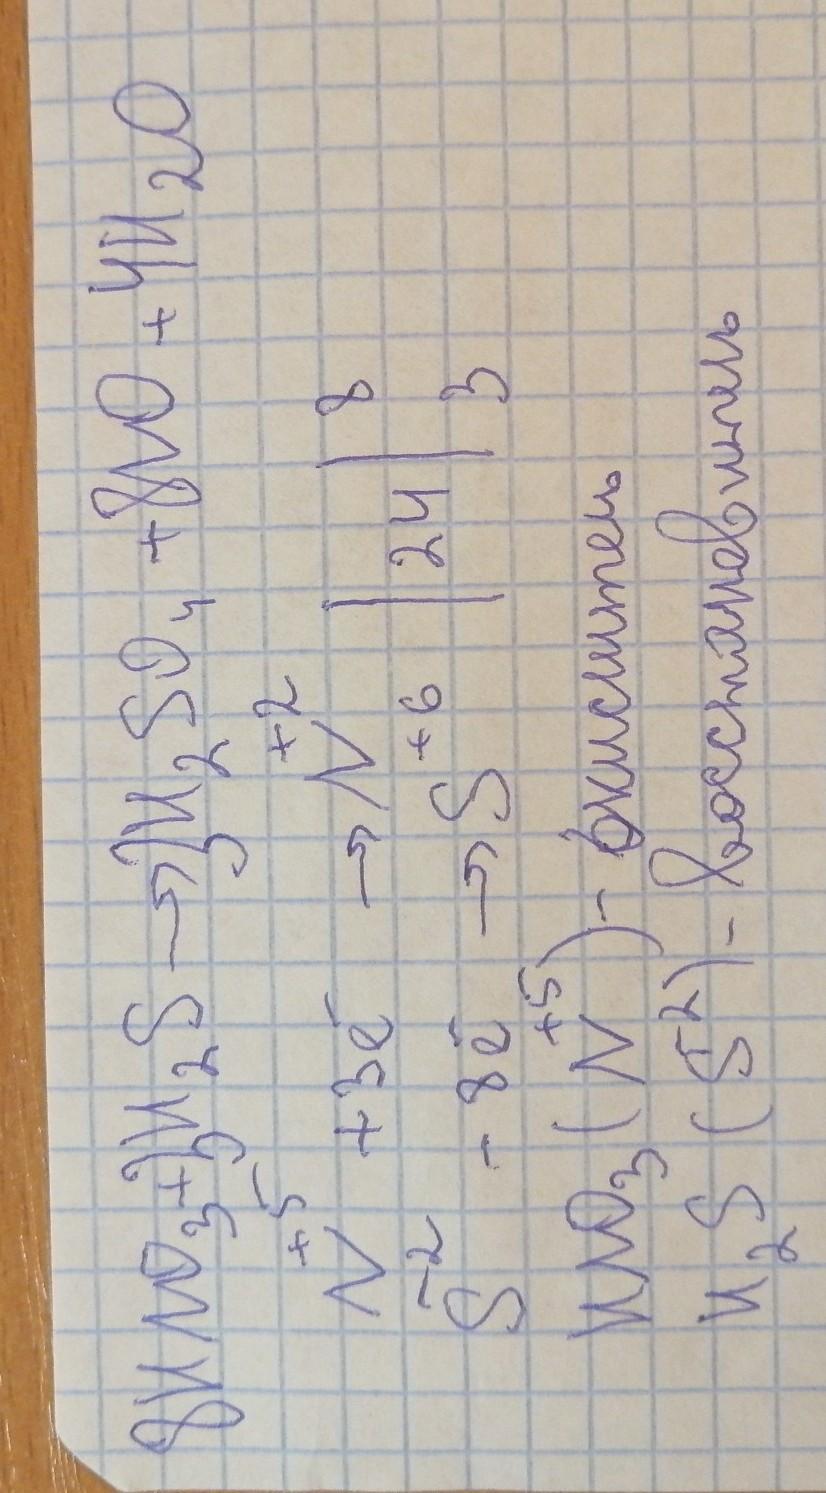 8HNO₃ + 3H₂S → 3H₂SO₄ + 8NO + 4H₂O
N⁺⁵ + 3e⁻ → N⁺² | | 8
S⁻² - 8e⁻ → S⁺⁶ | 24 | 3
HNO₃ (N⁺⁵) - окислитель
H₂S (S⁻²) - восстановитель